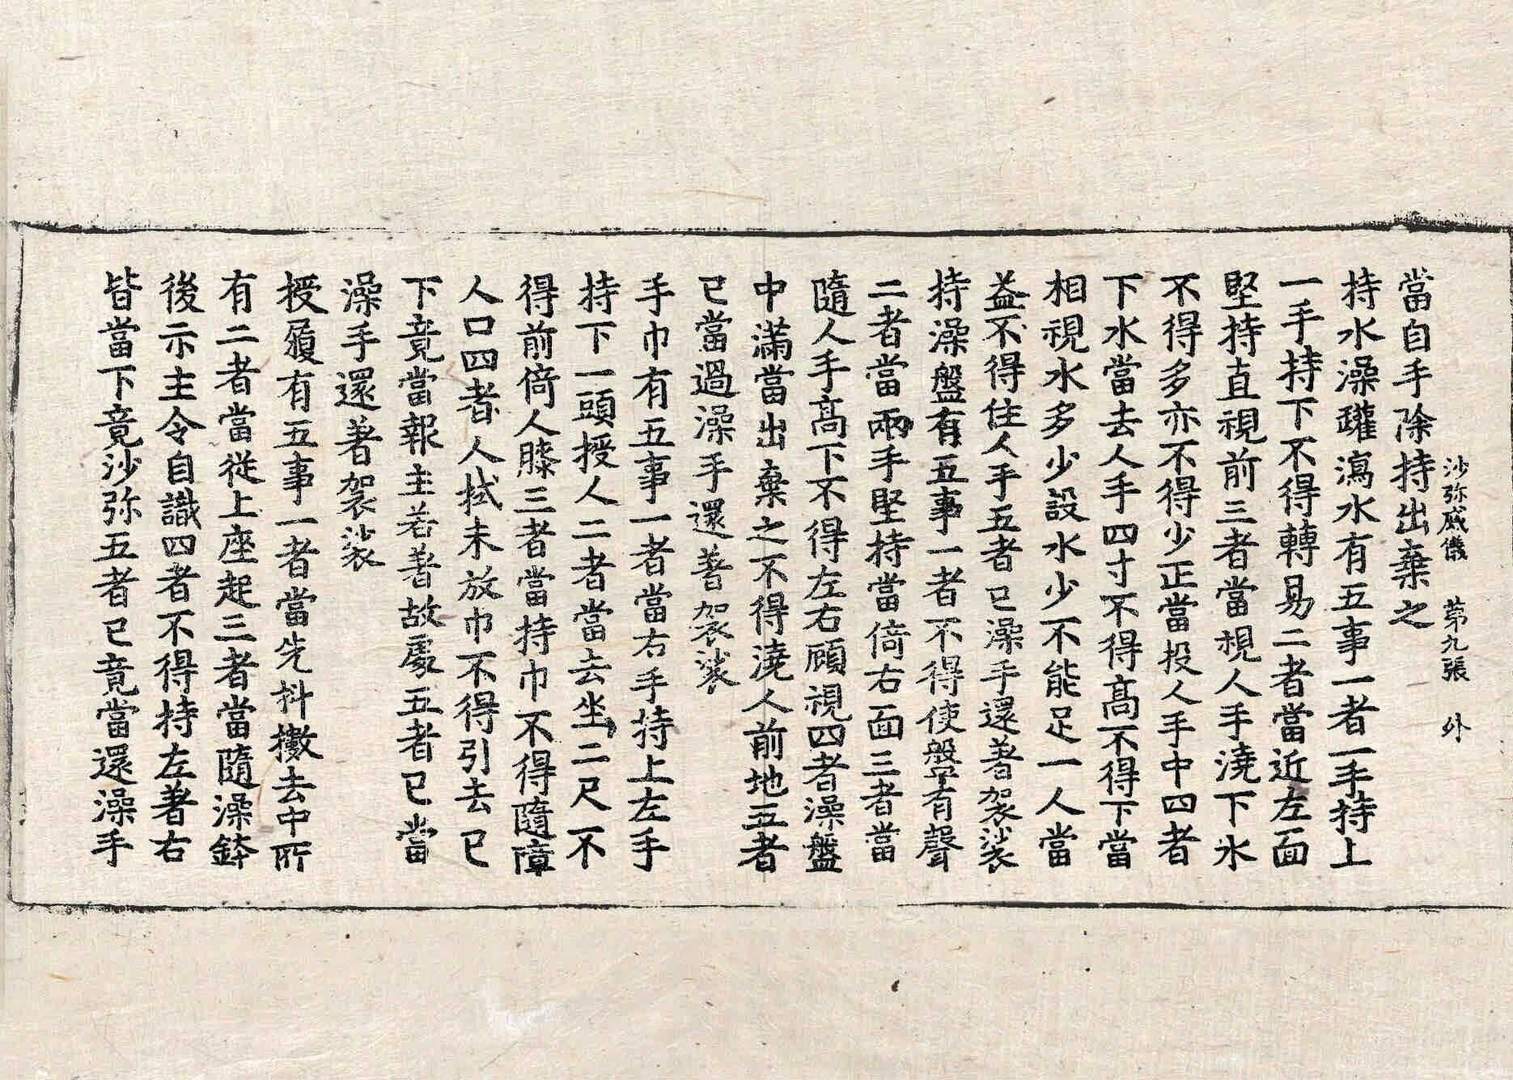 沙弥威儀　第九張　外
當自手除持出棄之
持水澡罐瀉水有五事一者一手持上
一手持下不得轉易二者當近左面
堅持直視前三者當視人手澆下水
不得多亦不得少正當投人手中四者
下水當去人手四寸不得髙不得下當
相視水多少設水少不能足一人當
益不得住人手五者已澡手還著袈裟
持澡盤有五事一者不得使盤有聲
二者當兩手堅持當倚右面三者當
隨人手髙下不得左右顧視四者澡盤
中滿當出棄之不得澆人前地五者
已當過澡手還著袈裟
手巾有五事一者當右手持上左手
持下一頭授人二者當去坐二尺不
得前倚人膝三者當持巾不得隨障
人口四者人拭未放巾不得引去已
下竟當報主若著故處五者已當
澡手還著袈裟
授履有五事一者當先抖擻去中所
有二者當從上座起三者當隨澡鉢
後示主令自識四者不得持左著右
皆當下竟沙弥五者已竟當還澡手